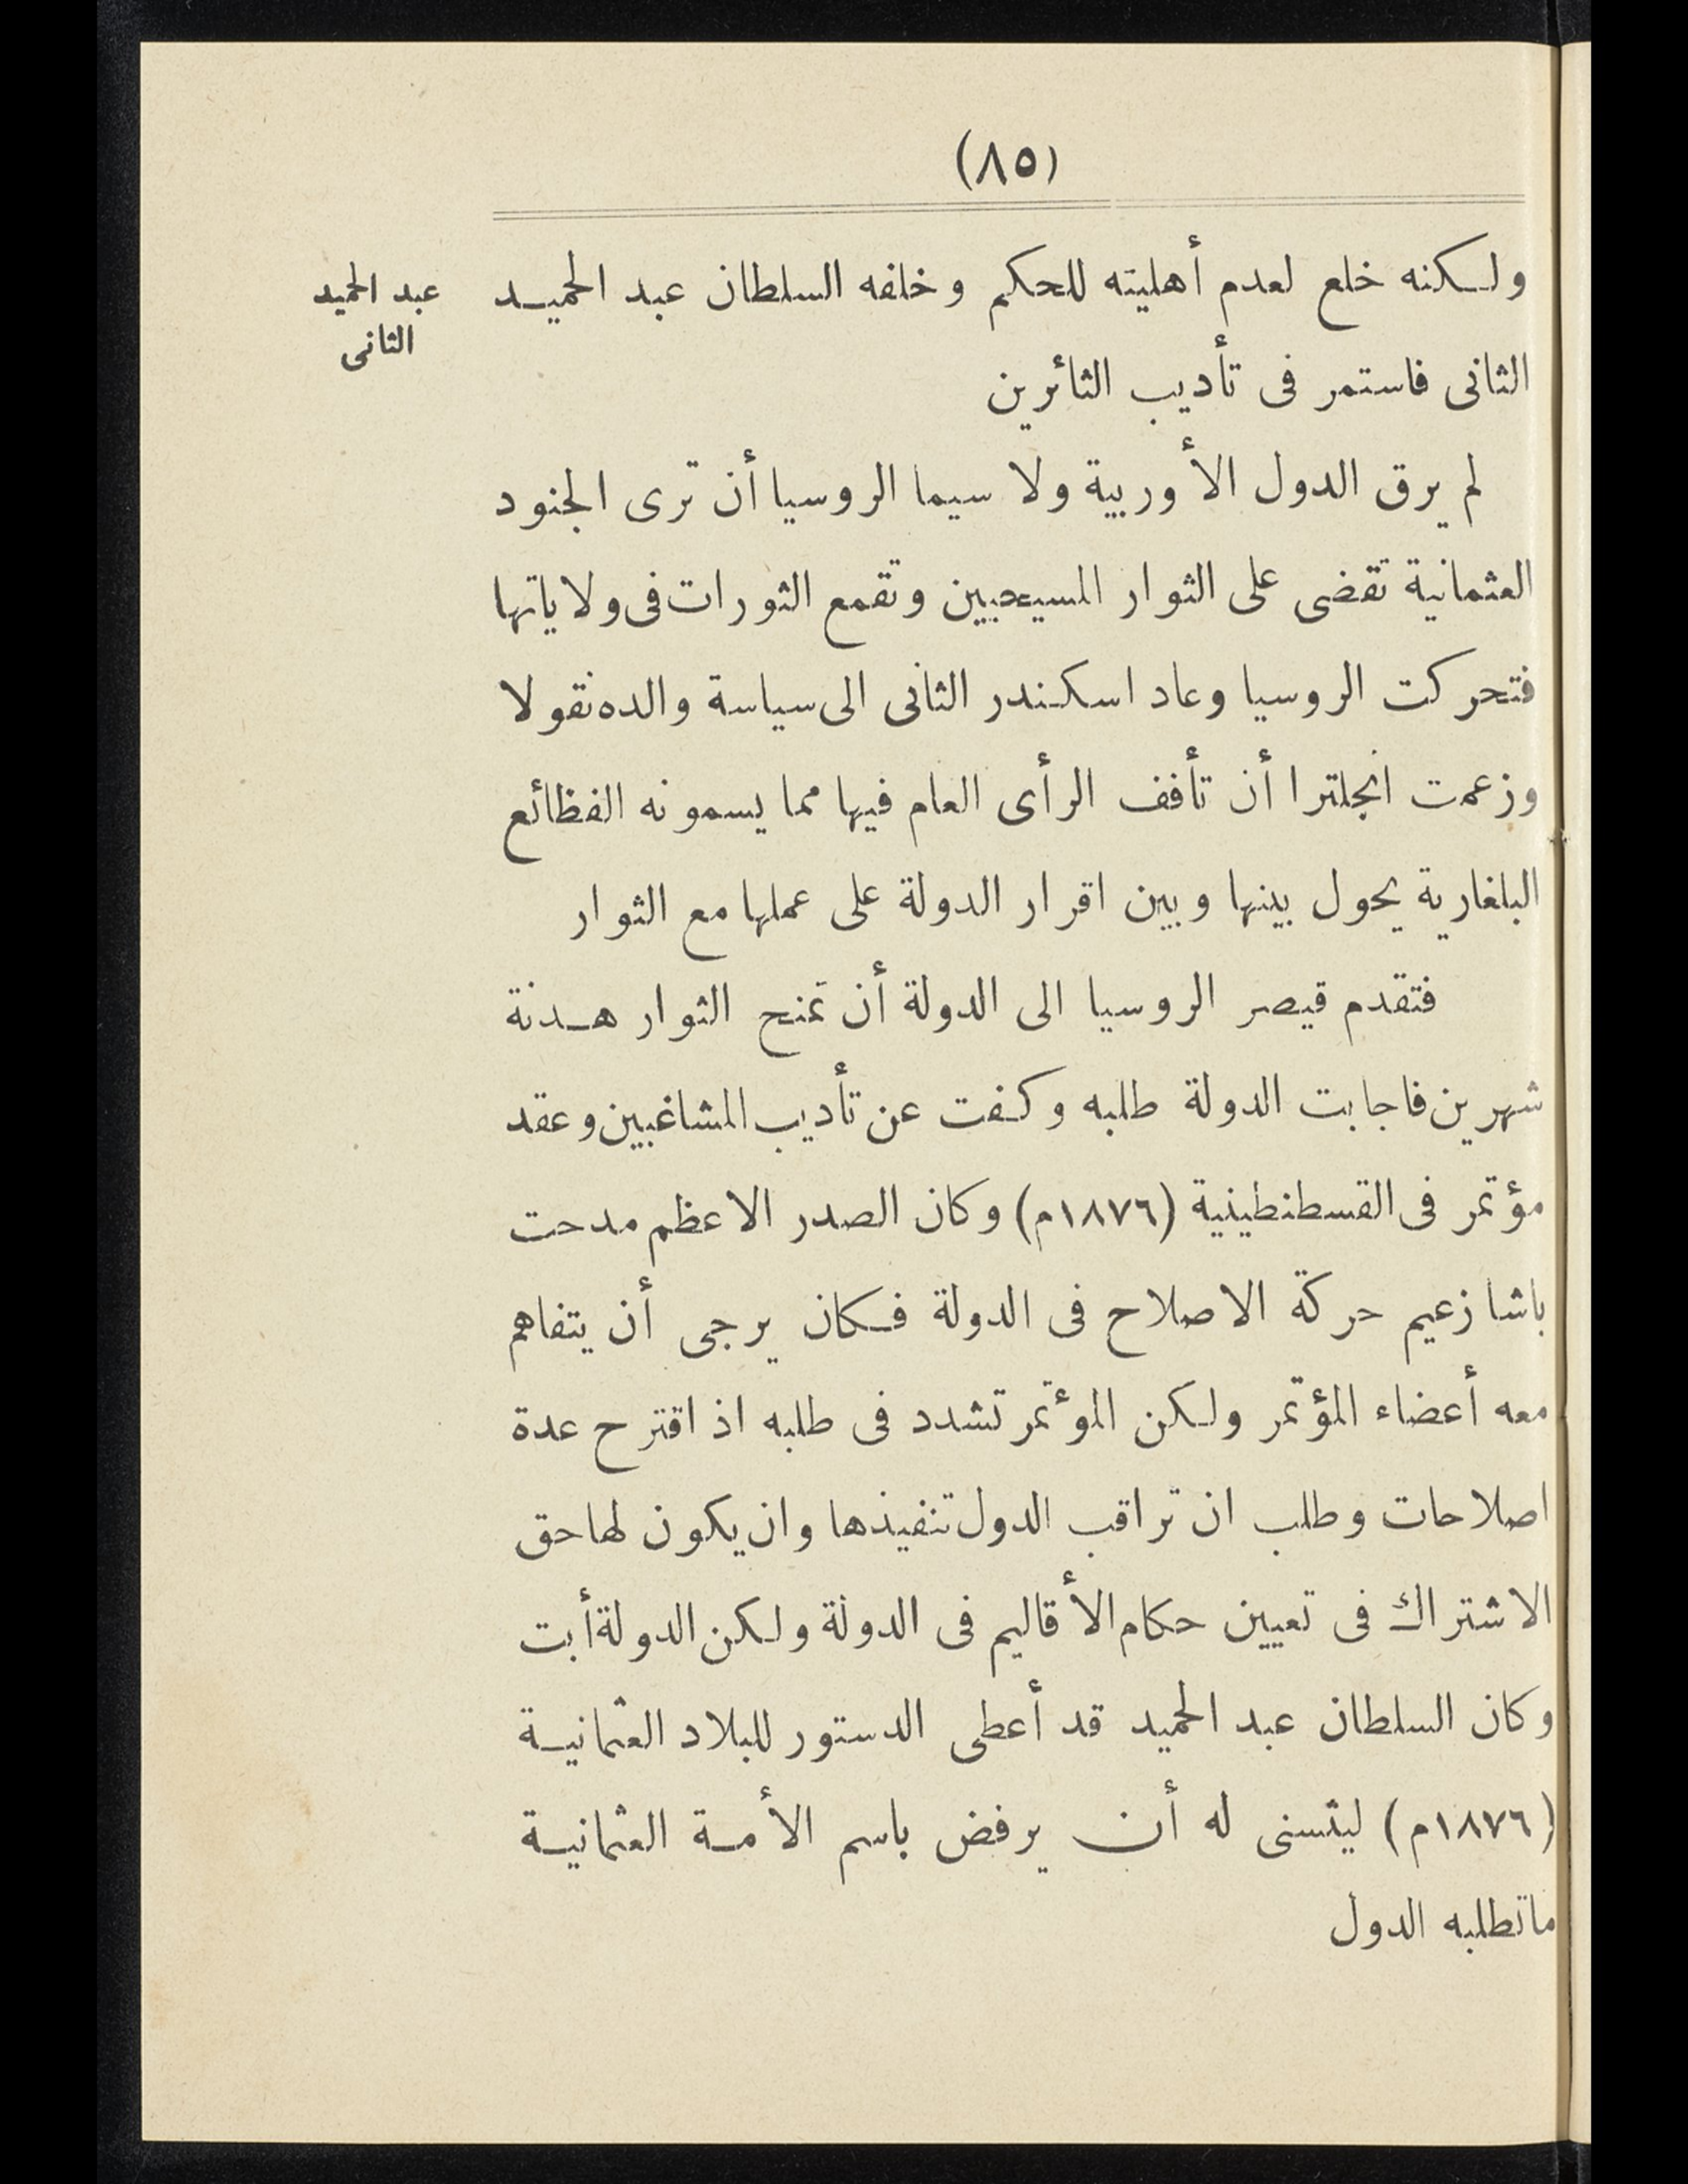 (٨٥)
ولكنه خلع لعدم أهليته للحكم وخلفه السلطان عبد الحميد
عبد الحميد
الثانى
الثانى فاستمر فى تأديب الثائرين
لم يرق الدول الأوربية ولا سيما الروسيا أن ترى الجنود
العثمانية تقضى على الثوار المسيحيين وتقمع الثورات فى ولاياتها
فتحركت الروسيا وعاد اسكندر الثانى الى سياسة والده نقولا
وزعمت انجلترا أن تأفف الرأى العام فيها مما يسمونه الفظائع
البلغارية يحول بينها وبين اقرار الدولة على عملها مع الثوار
فتقدم قيصر الروسيا الى الدولة أن تمنح الثوار هدنة
شهرين فاجابت الدولة طلبه وكفت عن تأديب المشاغبين وعقد
مؤتمر فى القسطنطينية (١٨٧٦م) وكان الصدر الاعظم مدحت
باشا زعيم حركة الاصلاح فى الدولة فكان يرجى أن يتفاهم
معه أعضاء المؤتمر ولكن الموءتمر تشدد فى طلبه اذ اقترح عدة
اصلاحات وطلب ان تراقب الدول تنفيذها وان يكون لها حق
الاشتراك فى تعيين حكام الأقاليم فى الدولة ولكن الدولة أبت
وكان السلطان عبد الحميد قد أعطى الدستور للبلاد العثمانية
(١٨٧٦م) ليتسنى له أن يرفض باسم الأمة العثمانية
ماتطلبه الدول